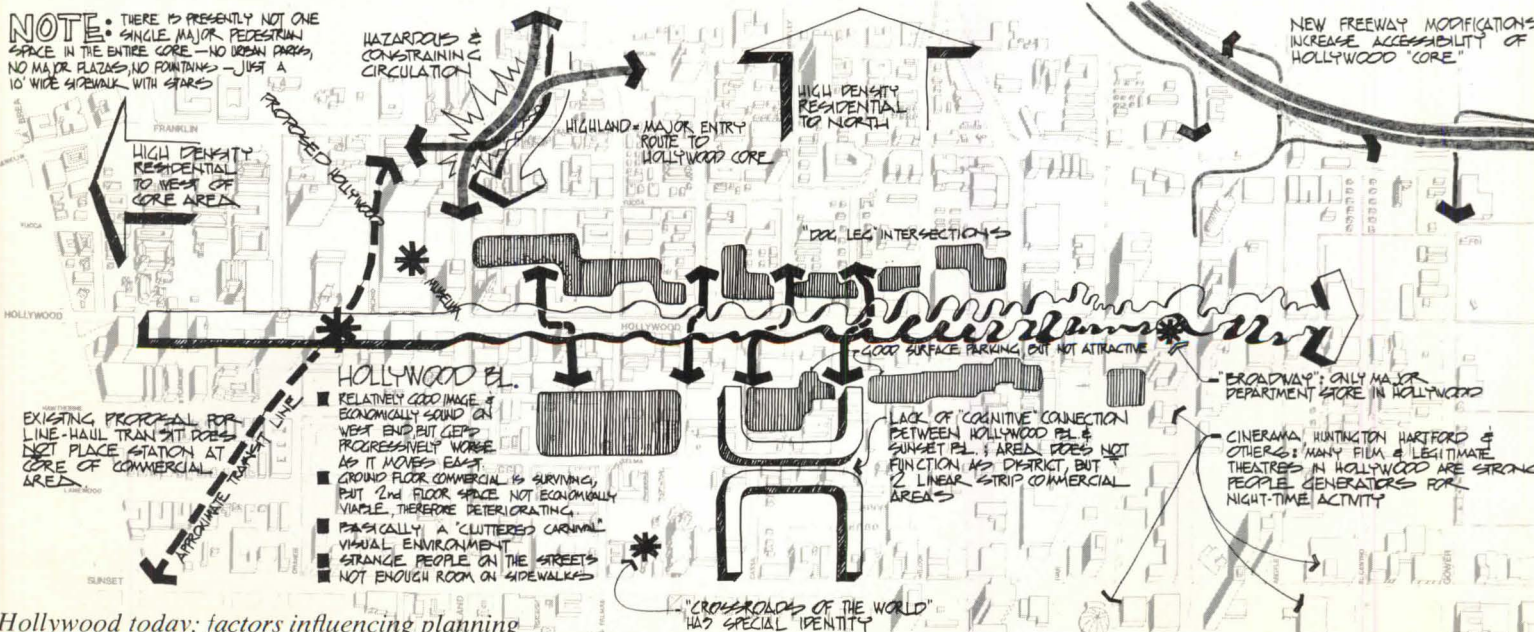 NOTE: THERE IS PRESENTLY NOT ONE
SINGLE MAJOR PEDESTRIAN
SPACE IN THE ENTIRE CORE — NO URBAN PARKS,
NO MAJOR PLAZAS, NO FOUNTAINS — JUST A
10' WIDE SIDEWALK WITH STARS
HAZARDOUS &
CONSTRAINING
CIRCULATION
HIGH DENSITY
RESIDENTIAL
TO NORTH
NEW FREEWAY MODIFICATIONS
INCREASE ACCESSIBILITY OF
HOLLYWOOD "CORE"
LA BREA
FRANKLIN
HIGH DENSITY
RESIDENTIAL
TO WEST OF
CORE AREA
PROPOSED HOLLYWOOD
MUSEUM
HIGHLAND = MAJOR ENTRY
ROUTE TO
HOLLYWOOD CORE
YUCCA
YUCCA
"DOG LEG" INTERSECTIONS
HOLLYWOOD
HOLLYWOOD
GOOD SURFACE PARKING, BUT NOT ATTRACTIVE
HOLLYWOOD BL.
RELATIVELY GOOD IMAGE &
ECONOMICALLY SOUND ON
WEST END BUT GETS
PROGRESSIVELY WORSE
AS IT MOVES EAST.
GROUND FLOOR COMMERCIAL IS SURVIVING,
BUT 2nd FLOOR SPACE NOT ECONOMICALLY
VIABLE, THEREFORE DETERIORATING.
BASICALLY A "CLUTTERED CARNIVAL"
VISUAL ENVIRONMENT
STRANGE PEOPLE ON THE STREETS
NOT ENOUGH ROOM ON SIDEWALKS
EXISTING PROPOSAL FOR
LINE-HAUL TRANSIT DOES
NOT PLACE STATION AT
CORE OF COMMERCIAL
AREA.
HAWTHORNE
SELMA
APPROXIMATE TRANSIT LINE
LACK OF "COGNITIVE" CONNECTION
BETWEEN HOLLYWOOD BL. &
SUNSET BL.; AREA DOES NOT
FUNCTION AS DISTRICT, BUT
2 LINEAR STRIP COMMERCIAL
AREAS
"BROADWAY": ONLY MAJOR
DEPARTMENT STORE IN HOLLYWOOD
CINERAMA, HUNTINGTON HARTFORD &
OTHERS: MANY FILM & LEGITIMATE
THEATRES IN HOLLYWOOD ARE STRONG
PEOPLE GENERATORS FOR
NIGHT-TIME ACTIVITY
SUNSET
GOWER
"CROSSROADS OF THE WORLD"
HAS SPECIAL IDENTITY
Hollywood today: factors influencing planning